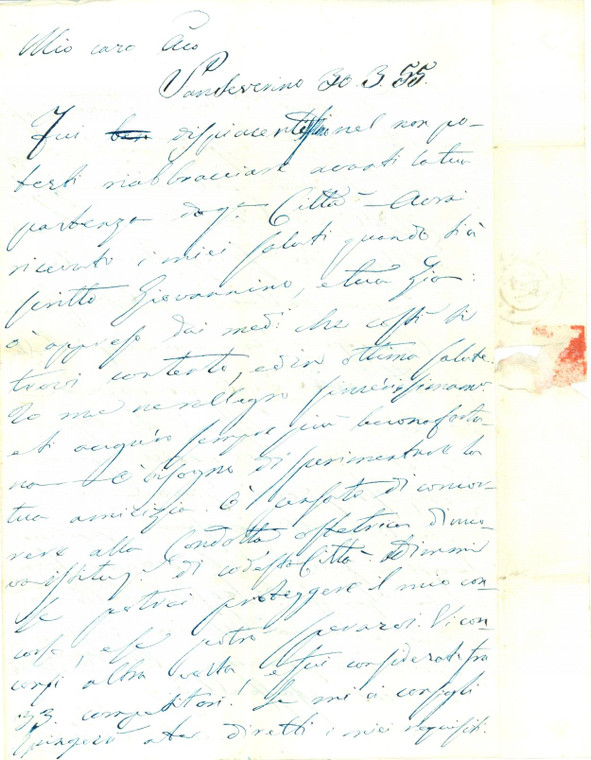 Mio caro
Sanseverino 30. 3. 55.
Fui ben nel non po-
terti riabbracciare avanti la tua
partenza da q.a Città - Avrai
ricevuti i miei saluti quando ti à
scritto Giovannino, e tua Zia:
ò appreso dai medi che costì ti
trovi contento, ed in ottima salute
Io me ne rallegro
e ti auguro sempre più buona fortu-
na - È bisogno di sperimentare la
tua amicizia. È di concor-
rere alla Condotta ostetrica di nuo-
va di codesta Città. Dimmi
se potrai proteggere il mio con-
corso, e se potrò sperarci. Vi con-
corsi altra volta, e fui considerato fra
33 competitori! Se mi ci consigli
diretti i miei requisiti.